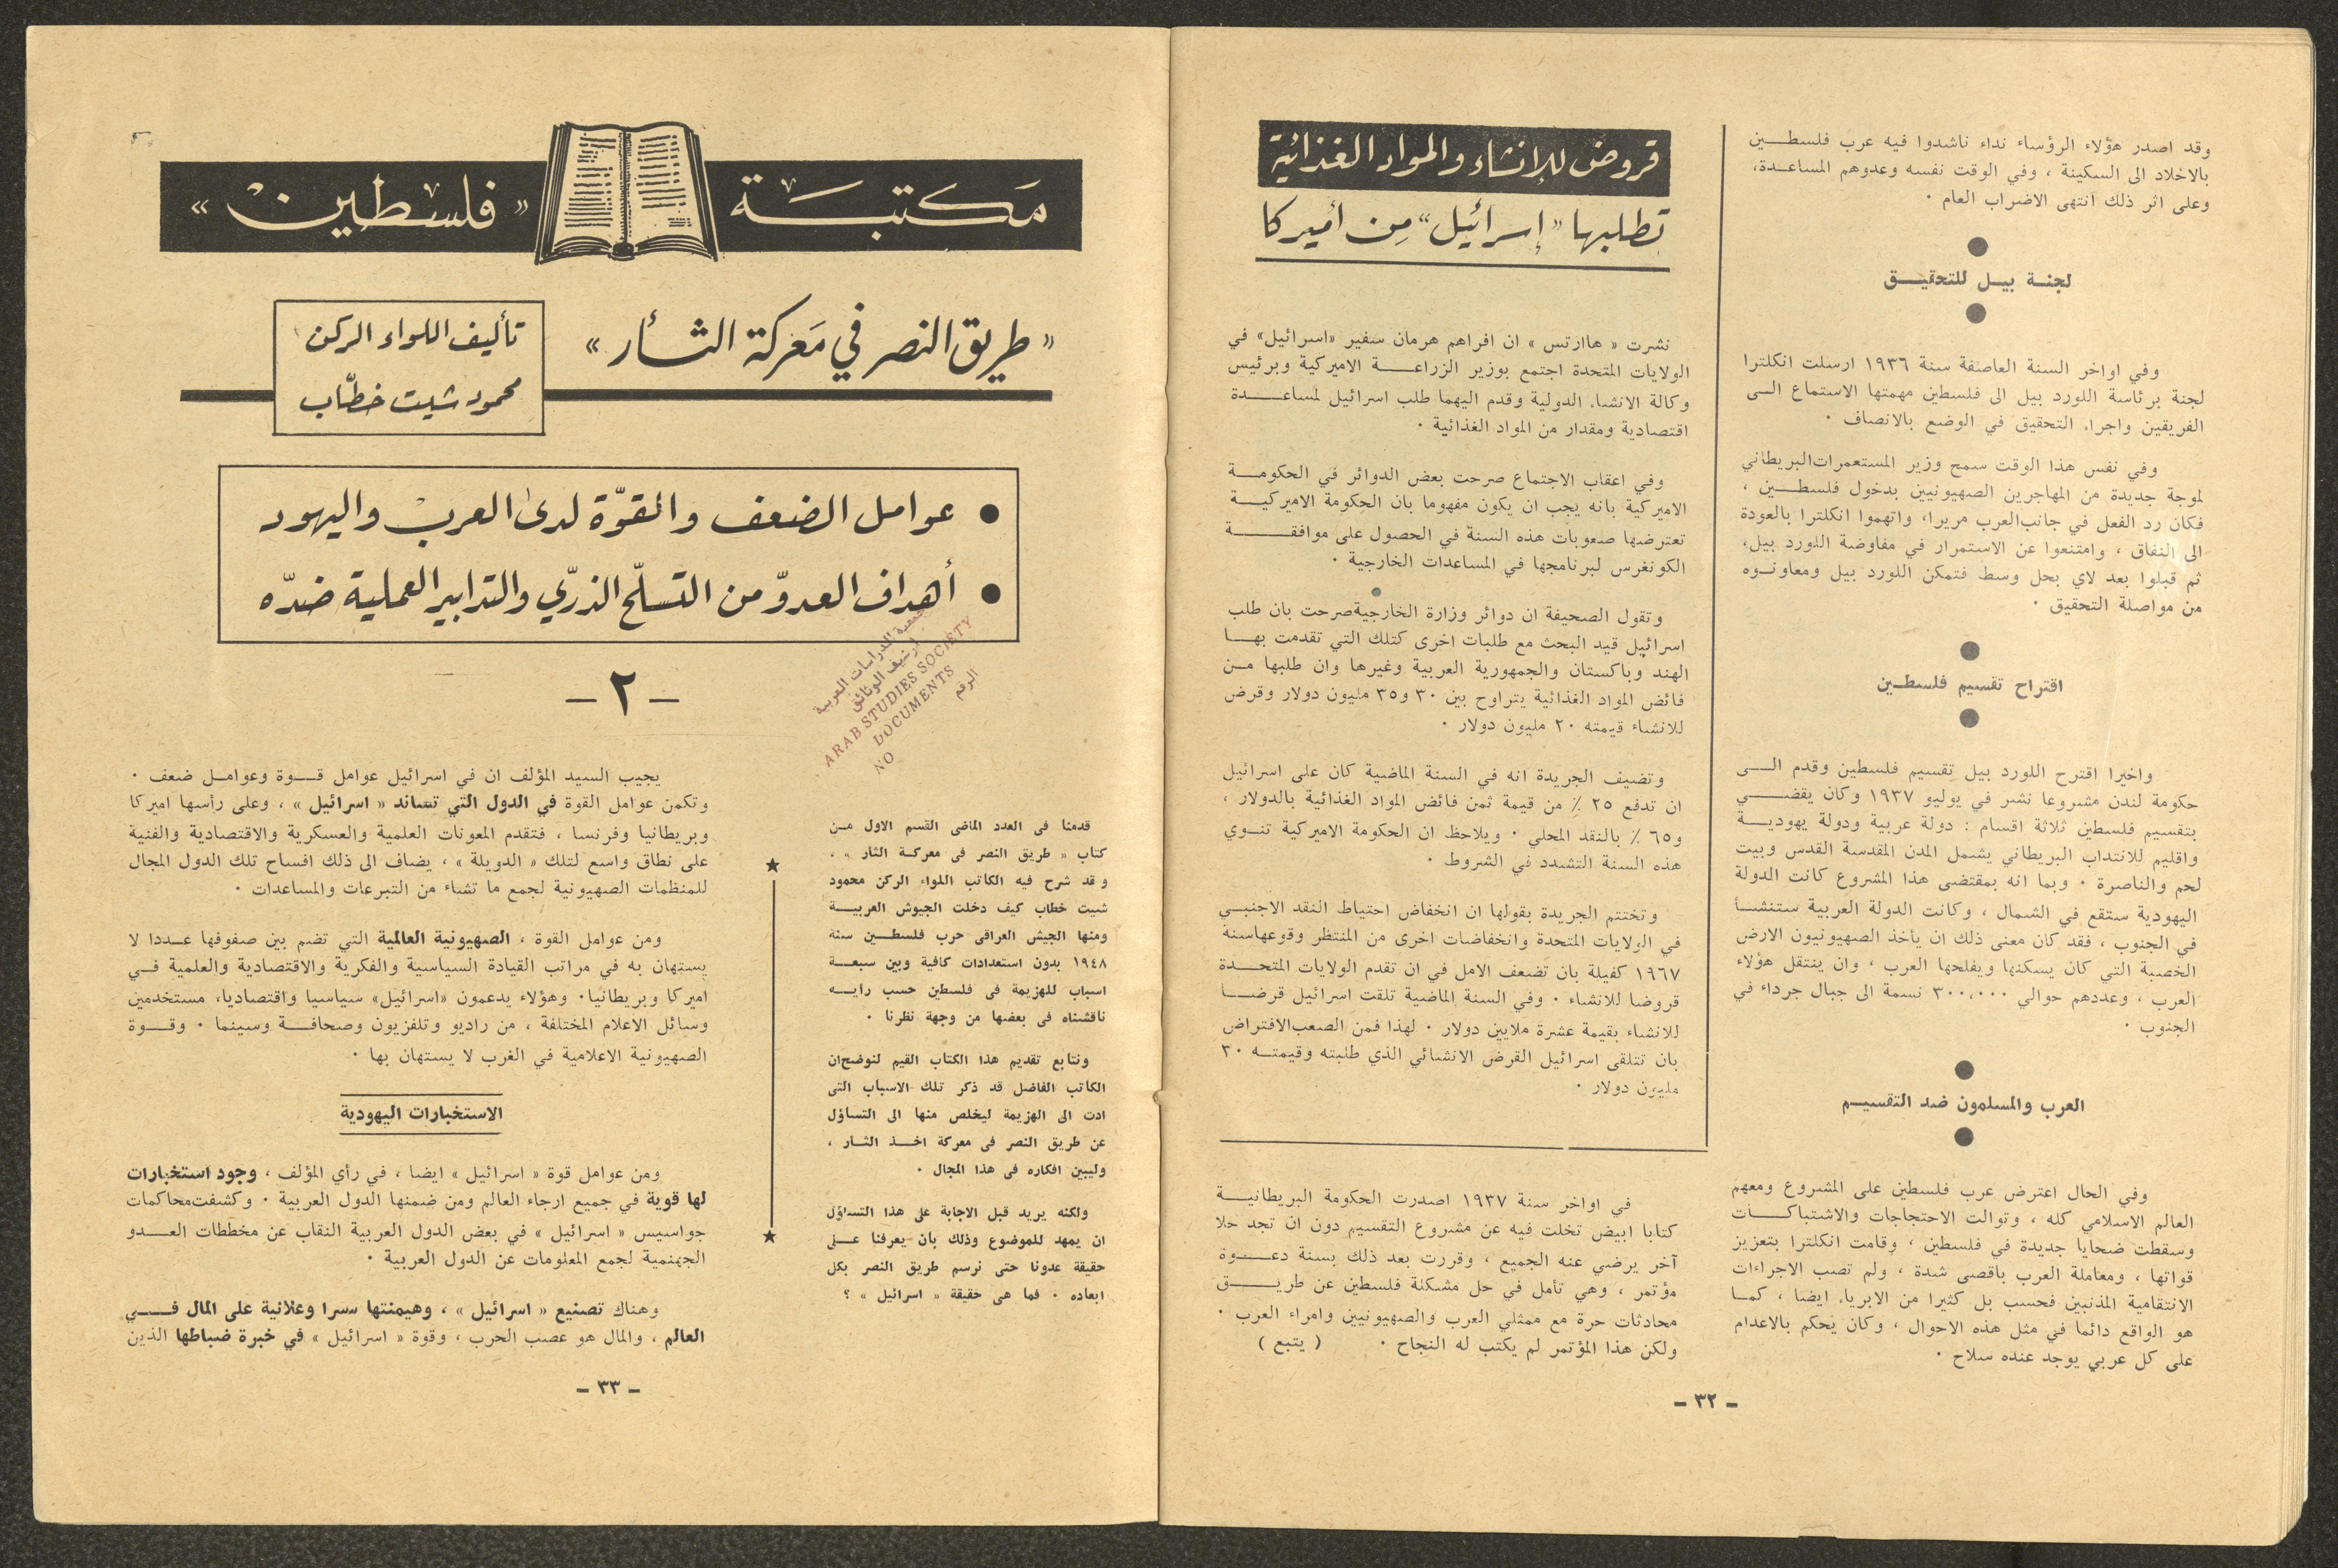 وقد اصدر هؤلاء الرؤساء نداء ناشدوا فيه عرب فلسطــين
بالاخلاد الى السكينة ، وفي الوقت نفسه وعدوهم المساعــدة،
وعلى اثر ذلك انتهى الاضراب العام ٠
لجنــة بيــل للتحقيــق
وفي اواخر السنة العاصفة سنة ١٩٣٦ ارسلت انكلترا
لجنة برئاسة اللورد بيل الى فلسطين مهمتها الاستماع الــى
الفريقين واجراء التحقيق في الوضع بالانصاف ٠
وفي نفس هذا الوقت سمح وزير المستعمرات البريطاني
لموجة جديدة من المهاجرين الصهيونيين بدخول فلسطــين ،
فكان رد الفعل في جانب العرب مريرا، واتهموا انكلترا بالعودة
الى النفاق ، وامتنعوا عن الاستمرار في مفاوضة اللورد بيل،
ثم قبلوا بعد لاي بحل وسط فتمكن اللورد بيل ومعاونــوه
من مواصلة التحقيق ٠
اقتراح تقسيم فلسطـين
واخيرا اقترح اللورد بيل تقسيم فلسطين وقدم الــى
حكومة لندن مشروعا نشر في يوليو ١٩٣٧ وكان يقضــي
بتقسيم فلسطين ثلاثة اقسام : دولة عربية ودولة يهوديــة
واقليم للانتداب البريطاني يشمل المدن المقدسة القدس وبيت
لحم والناصرة ٠ وبما انه بمقتضى هذا المشروع كانت الدولة
اليهودية ستقع في الشمال ، وكانت الدولة العربية ستنشــأ
في الجنوب ، فقد كان معنى ذلك ان يأخذ الصهيونيون الارض
الخصبة التي كان يسكنها ويفلحها العرب ، وان ينتقل هؤلاء
العرب ، وعددهم حوالي ٣٠٠,٠٠٠ نسمة الى جبال جرداء في
الجنوب ٠
العرب والمسلمون ضد التقسيــم
وفي الحال اعترض عرب فلسطين على المشروع ومعهم
العالم الاسلامي كله ، وتوالت الاحتجاجات والاشتباكــات
وسقطت ضحايا جديدة في فلسطين ، وقامت انكلترا بتعزيز
قواتها ، ومعاملة العرب باقصى شدة ، ولم تصب الاجراءات
الانتقامية المذنبين فحسب بل كثيرا من الابرياء ايضا ، كمــا
هو الواقع دائما في مثل هذه الاحوال ، وكان يحكم بالاعدام
على كل عربي يوجد عنده سلاح ٠
قروض للإنشاء والمواد الغذائية
تطلبها «إسرائيل» مِن أميركا
نشرت « هاارتس » ان افراهم هرمان سفير «اسرائيل» في
الولايات المتحدة اجتمع بوزير الزراعــة الاميركية وبرئيس
وكالة الانشاء الدولية وقدم اليهما طلب اسرائيل لمساعــدة
اقتصادية ومقدار من المواد الغذائية ٠
وفي اعقاب الاجتماع صرحت بعض الدوائر في الحكومــة
الاميركية بانه يجب ان يكون مفهوما بان الحكومة الاميركيــة
تعترضها صعوبات هذه السنة في الحصول على موافقــة
الكونغرس لبرنامجها في المساعدات الخارجية ٠
وتقول الصحيفة ان دوائر وزارة الخارجية صرحت بان طلب
اسرائيل قيد البحث مع طلبات اخرى كتلك التي تقدمت بهــا
الهند وباكستان والجمهورية العربية وغيرها وان طلبها مــن
فائض المواد الغذائية يتراوح بين ٣٠ و٣٥ مليون دولار وقرض
للانشاء قيمته ٢٠ مليون دولار ٠
وتضيف الجريدة انه في السنة الماضية كان على اسرائيل
ان تدفع ٢٥ ٪ من قيمة ثمن فائض المواد الغذائية بالدولار ،
و٦٥ ٪ بالنقد المحلي ٠ ويلاحظ ان الحكومة الاميركية تنــوي
هذه السنة التشدد في الشروط ٠
وتختتم الجريدة بقولها ان انخفاض احتياط النقد الاجنبــي
في الولايات المتحدة وانخفاضات اخرى من المنتظر وقوعها سنة
١٩٦٧ كفيلة بان تضعف الامل في ان تقدم الولايات المتحــدة
قروضا للانشاء ٠ وفي السنة الماضية تلقت اسرائيل قرضــا
للانشاء بقيمة عشرة ملايين دولار ٠ لهذا فمن الصعب الافتراض
بان تتلقى اسرائيل القرض الانشائي الذي طلبته وقيمتــه ٣٠
مليون دولار ٠
في اواخر سنة ١٩٣٧ اصدرت الحكومة البريطانيــة
كتابا ابيض تخلت فيه عن مشروع التقسيم دون ان تجد حلا
آخر يرضي عنه الجميع ، وقررت بعد ذلك بسنة دعــوة
مؤتمر ، وهي تأمل في حل مشكلة فلسطين عن طريــق
محادثات حرة مع ممثلي العرب والصهيونيين وامراء العرب ٠
ولكن هذا المؤتمر لم يكتب له النجاح ٠ ( يتبع )
- ٣٢ -
مَكتبــة « فلسطين »
« طريق النصر في مَعركة الثــأر »
تأليف اللواء الركن
محمود شيت خطّاب
● عوامل الضعف والقوّة لدى العرب واليهود
● أهداف العدوّ من التسلّح الذرّي والتدابير العملية ضدّه
جمعية الدراسات العربية
ارشيف الوثائق
ARAB STUDIES SOCIETY
DOCUMENTS
NO الرقم
- ٢ -
قدمنا في العدد الماضي القسم الاول مــن
كتاب « طريق النصر في معركــة الثار » ،
وقد شرح فيه الكاتب اللواء الركن محمود
شيت خطاب كيف دخلت الجيوش العربيــة
ومنها الجيش العراقي حرب فلسطــين سنة
١٩٤٨ بدون استعدادات كافية وبين سبعــة
اسباب للهزيمة في فلسطين حسب رأيــه
ناقشناه في بعضها من وجهة نظرنا ٠
ونتابع تقديم هذا الكتاب القيم لنوضح ان
الكاتب الفاضل قد ذكر تلك الاسباب التي
ادت الى الهزيمة ليخلص منها الى التساؤل
عن طريق النصر في معركة اخــذ الثــار ،
وليبين افكاره في هذا المجال ٠
ولكنه يريد قبل الاجابة على هذا التساؤل
ان يمهد للموضوع وذلك بأن يعرفنا عــلى
حقيقة عدونا حتى نرسم طريق النصر بكل
ابعاده ٠ فما هي حقيقة « اسرائيل » ؟
يجيب السيد المؤلف ان في اسرائيل عوامل قــوة وعوامــل ضعف ٠
وتكمن عوامل القوة في الدول التي تساند « اسرائيل » ، وعلى رأسها اميركا
وبريطانيا وفرنسا ، فتقدم المعونات العلمية والعسكرية والاقتصادية والفنية
على نطاق واسع لتلك « الدويلة » ، يضاف الى ذلك افساح تلك الدول المجال
للمنظمات الصهيونية لجمع ما تشاء من التبرعات والمساعدات ٠
ومن عوامل القوة ، الصهيونية العالمية التي تضم بين صفوفها عــددا لا
يستهان به في مراتب القيادة السياسية والفكرية والاقتصادية والعلمية فــي
اميركا وبريطانيا٠ وهؤلاء يدعمون «اسرائيل» سياسيا واقتصاديا، مستخدمين
وسائل الاعلام المختلفة ، من راديو وتلفزيون وصحافــة وسينما ٠ وقــوة
الصهيونية الاعلامية في الغرب لا يستهان بها ٠
الاستخبارات اليهودية
ومن عوامل قوة « اسرائيل » ايضا ، في رأي المؤلف ، وجود استخبارات
لها قوية في جميع ارجاء العالم ومن ضمنها الدول العربية ٠ وكشفت محاكمات
جواسيس « اسرائيل » في بعض الدول العربية النقاب عن مخططات العــدو
الجهنمية لجمع المعلومات عن الدول العربية ٠
وهناك تصنيع « اسرائيل » ، وهيمنتها سرا وعلانية على المال فــي
العالم ، والمال هو عصب الحرب ، وقوة « اسرائيل » في خبرة ضباطها الذين
- ٣٣ -